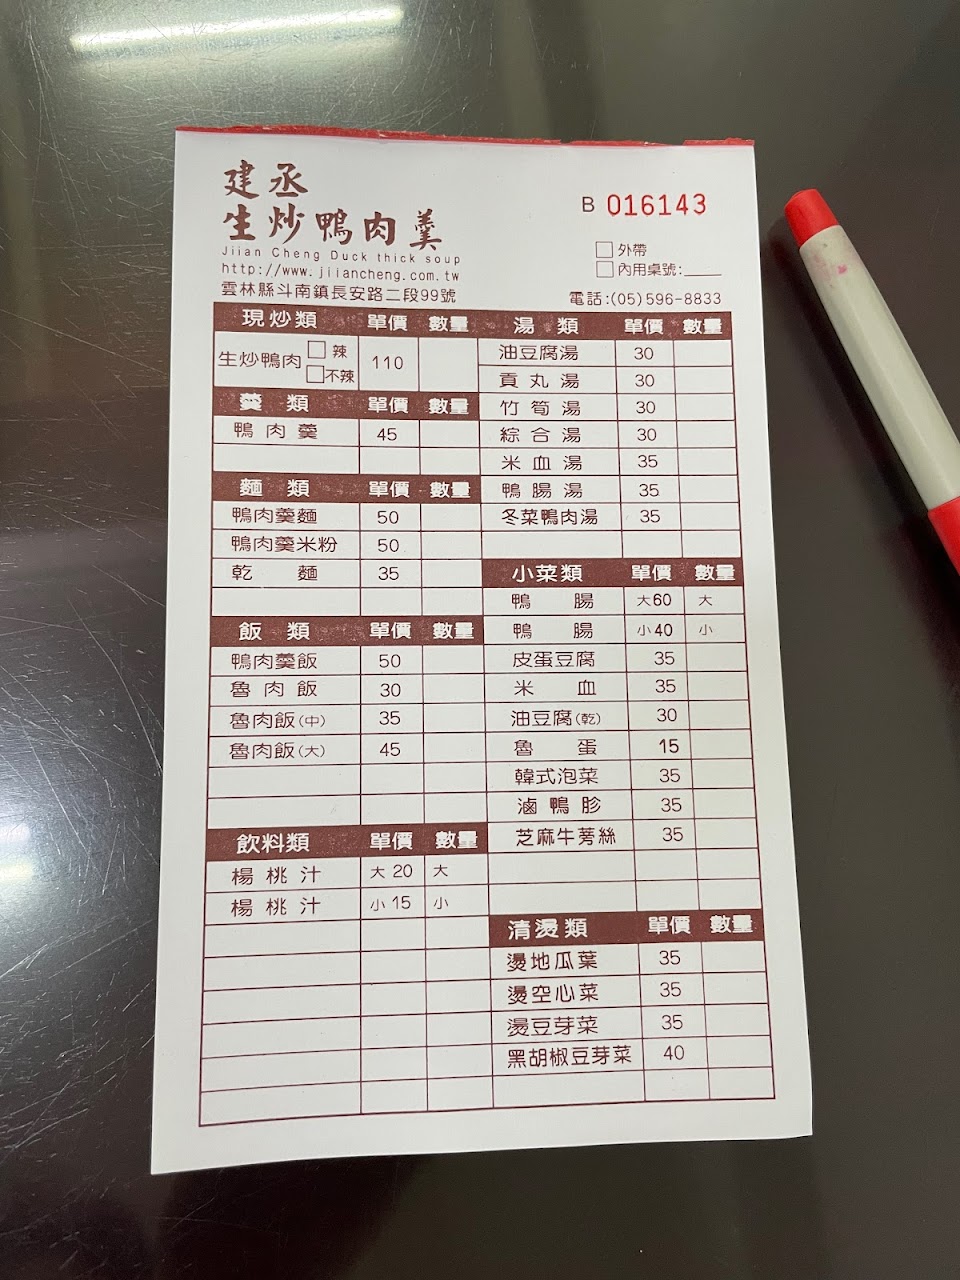 建丞
生炒鴨肉羹
Jiian Cheng Duck thick soup
http://www.jiiancheng.com.tw
雲林縣斗南鎮長安路二段99號
B 016143
外帶
內用桌號:____
電話:(05)596-8833
現炒類 單價 數量
生炒鴨肉 辣 不辣 110
羹類 單價 數量
鴨肉羹 45
麵類 單價 數量
鴨肉羹麵 50
鴨肉羹米粉 50
乾麵 35
飯類 單價 數量
鴨肉羹飯 50
魯肉飯 30
魯肉飯(中) 35
魯肉飯(大) 45
飲料類 單價 數量
楊桃汁 大20 大
楊桃汁 小15 小
湯類 單價 數量
油豆腐湯 30
貢丸湯 30
竹筍湯 30
綜合湯 30
米血湯 35
鴨腸湯 35
冬菜鴨肉湯 35
小菜類 單價 數量
鴨腸 大60 大
鴨腸 小40 小
皮蛋豆腐 35
米血 35
油豆腐(乾) 30
魯蛋 15
韓式泡菜 35
滷鴨胗 35
芝麻牛蒡絲 35
清燙類 單價 數量
燙地瓜葉 35
燙空心菜 35
燙豆芽菜 35
黑胡椒豆芽菜 40